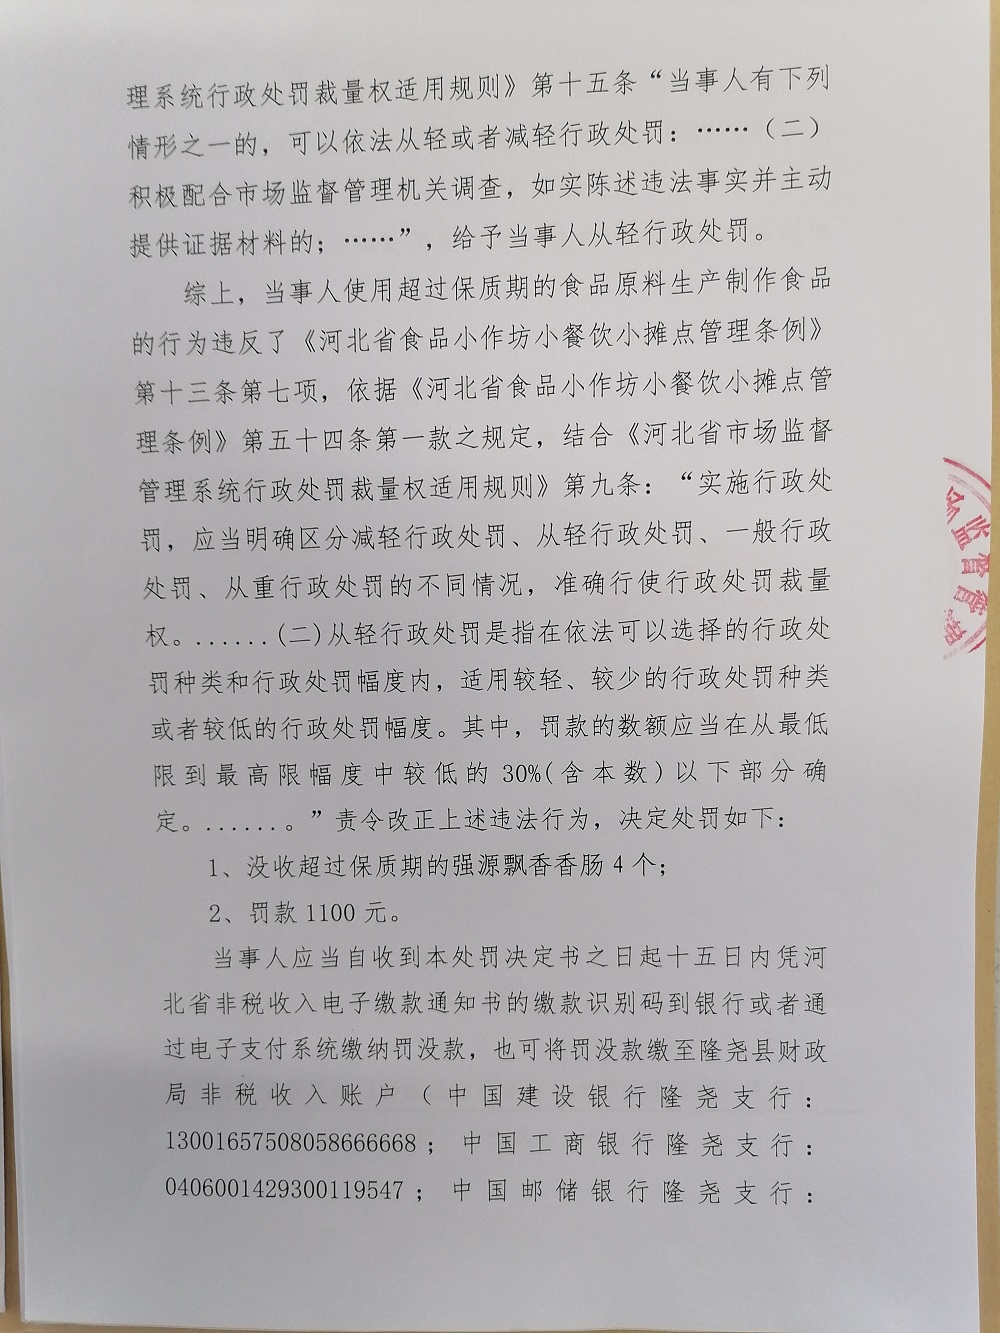 理系统行政处罚裁量权适用规则》第十五条“当事人有下列
情形之一的，可以依法从轻或者减轻行政处罚：……（二）
积极配合市场监督管理机关调查，如实陈述违法事实并主动
提供证据材料的；……”，给予当事人从轻行政处罚。
综上，当事人使用超过保质期的食品原料生产制作食品
的行为违反了《河北省食品小作坊小餐饮小摊点管理条例》
第十三条第七项，依据《河北省食品小作坊小餐饮小摊点管
理条例》第五十四条第一款之规定，结合《河北省市场监督
管理系统行政处罚裁量权适用规则》第九条：“实施行政处
罚，应当明确区分减轻行政处罚、从轻行政处罚、一般行政
处罚、从重行政处罚的不同情况，准确行使行政处罚裁量
权。.......(二)从轻行政处罚是指在依法可以选择的行政处
罚种类和行政处罚幅度内，适用较轻、较少的行政处罚种类
或者较低的行政处罚幅度。其中，罚款的数额应当在从最低
限到最高限幅度中较低的30%(含本数)以下部分确
定。.......。”责令改正上述违法行为，决定处罚如下：
1、没收超过保质期的强源飘香香肠4个；
2、罚款1100元。
当事人应当自收到本处罚决定书之日起十五日内凭河
北省非税收入电子缴款通知书的缴款识别码到银行或者通
过电子支付系统缴纳罚没款，也可将罚没款缴至隆尧县财政
局非税收入账户（中国建设银行隆尧支行：
13001657508058666668；中国工商银行隆尧支行：
0406001429300119547；中国邮储银行隆尧支行：
场监督管理